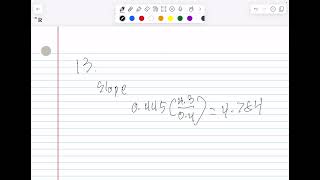 13.
Slope
0.445(4.3/0.4) = 4.784